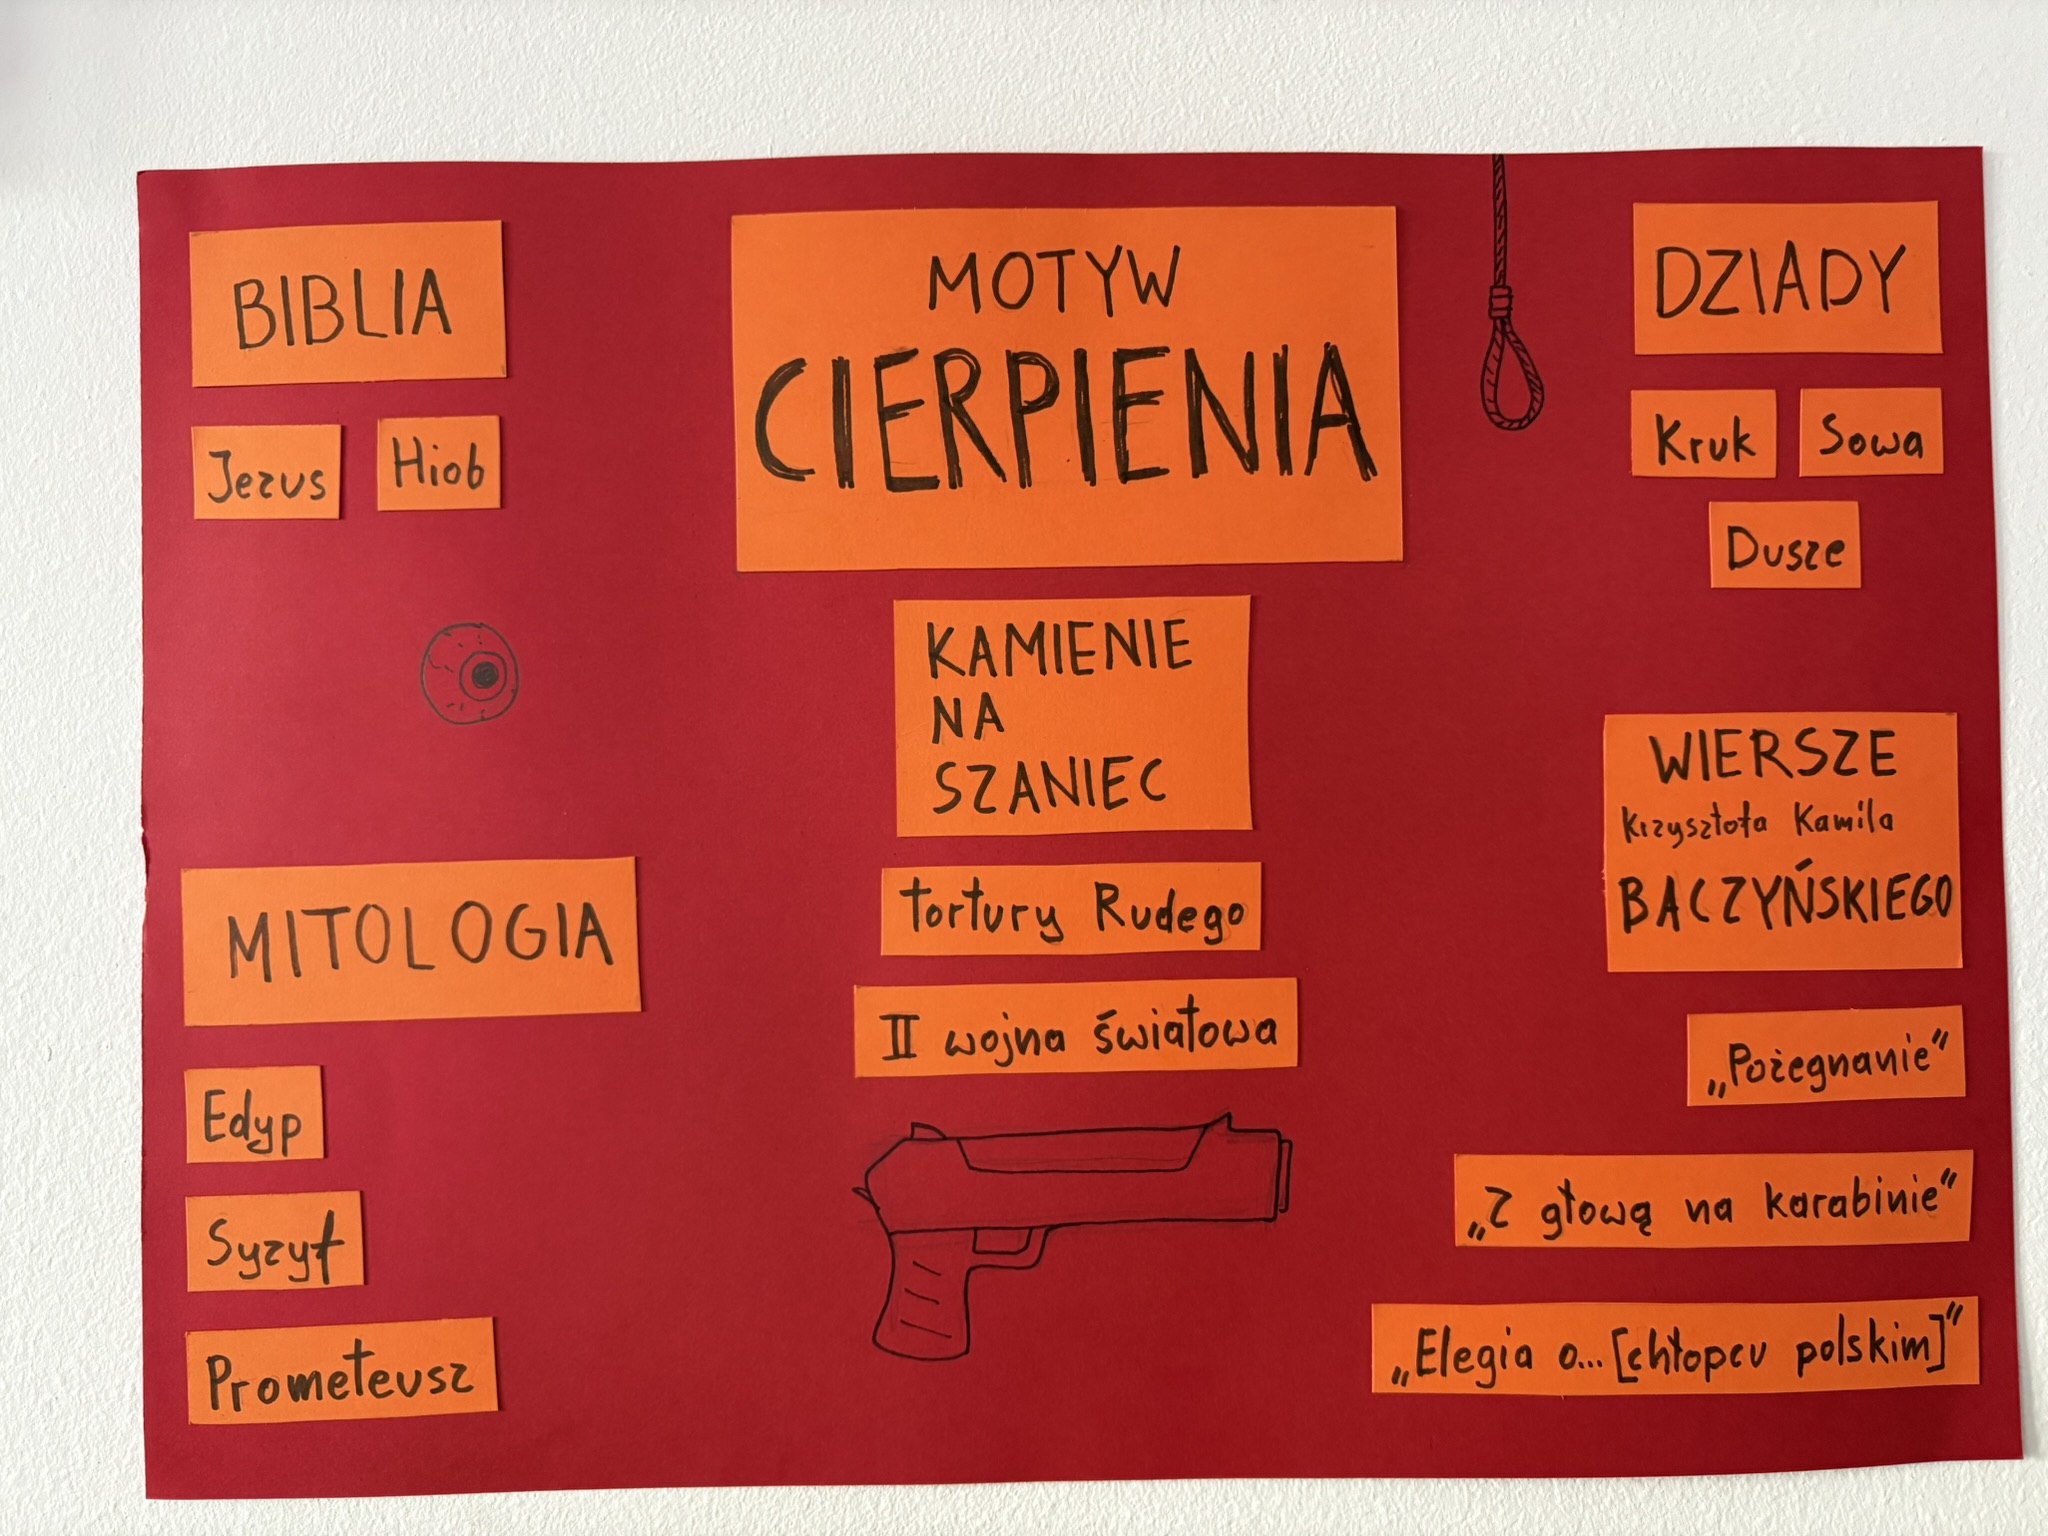 BIBLIA
Jezus
Hiob
MITOLOGIA
Edyp
Syzyf
Prometeusz
MOTYW
CIERPIENIA
KAMIENIE
NA
SZANIEC
tortury Rudego
II wojna światowa
DZIADY
Kruk
Sowa
Dusze
WIERSZE
Krzysztofa Kamila
BACZYŃSKIEGO
„Pożegnanie"
„Z głową na karabinie"
„Elegia o... [chłopcu polskim]"